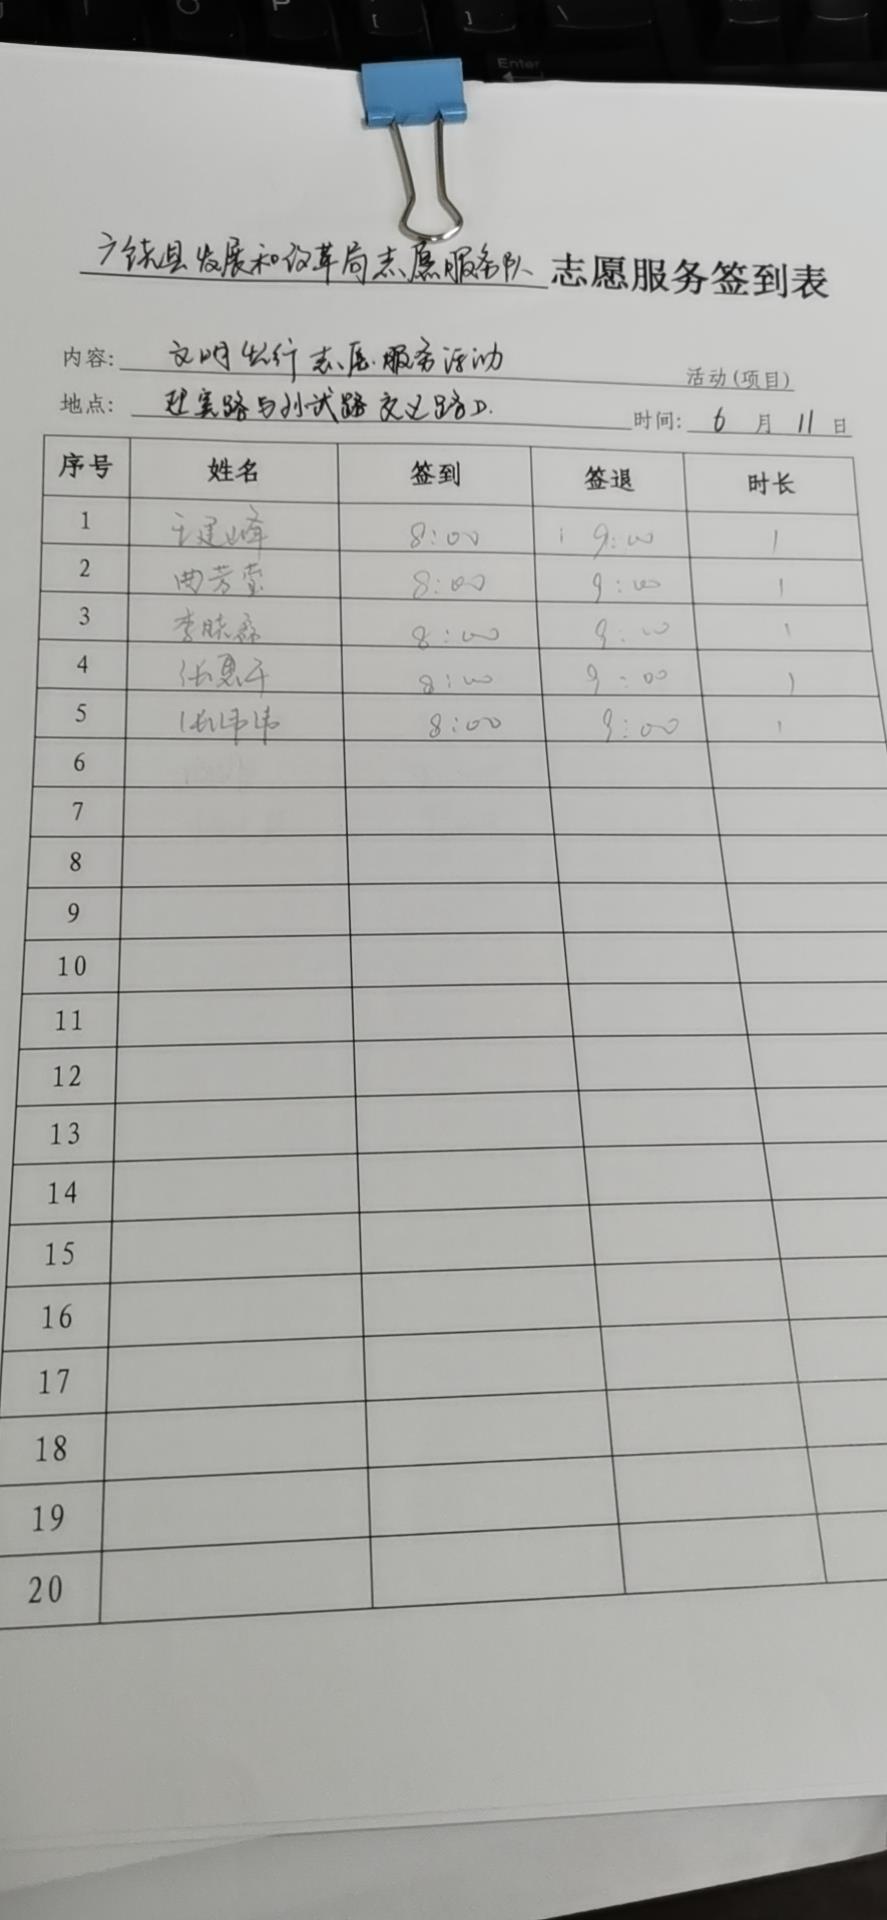 Enter
广饶县发展和改革局志愿服务队 志愿服务签到表
内容: 文明出行志愿服务活动 活动(项目)
地点: 与孙武路交叉路口. 时间: 6 月 11 日
序号 姓名 签到 签退 时长
1 王建峰 8:00 9:00 1
2 曲芳莹 8:00 9:00 1
3 李晓 8:00 9:00 1
4 张惠子 8:00 9:00 1
5 张伟伟 8:00 9:00 1
6
7
8
9
10
11
12
13
14
15
16
17
18
19
20